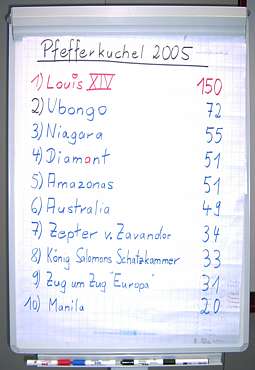 Pfefferkuchel 2005
1) Louis XIV 150
2) Ubongo 72
3) Niagara 55
4) Diamant 51
5) Amazonas 51
6) Australia 49
7) Zepter v. Zavandor 34
8) König Salomons Schatzkammer 33
9) Zug um Zug "Europa" 31
10) Manila 20